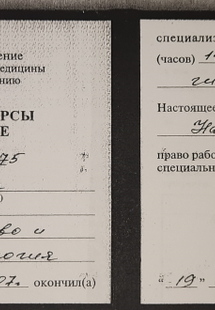 ение
едицины
нию
РСЫ
Е
75
)
во и
логия
07. окончил(а)
специализ
(часов) 1
ги
Настоящее
На
право рабо
специальн
"19"